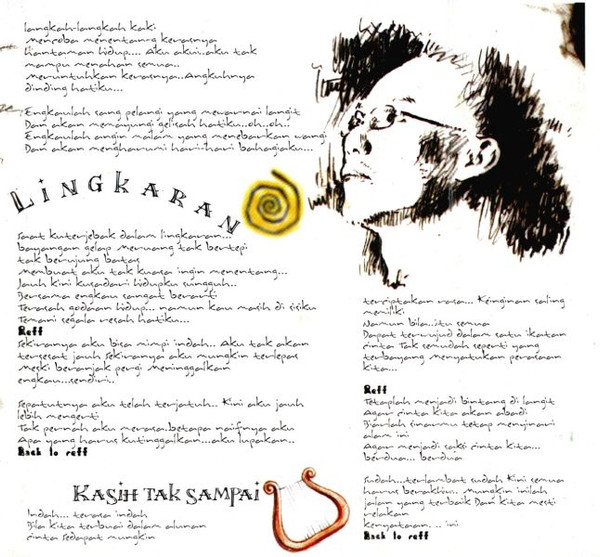 langkah-langkah kaki
mencoba menentang kerasnya
Hantaman hidup.... Aku akui..aku tak
mampu menahan semua..
meruntuhkan kerasnya..Angkuhnya
dinding hatiku...
Engkaulah sang pelangi yang mewarnai langit
Dan akan memayungi gelisah hatiku...oh..oh..
Engkaulah angin malam yang menebarkan wangi
Dan akan mengharumi hari-hari bahagiaku...
LINGKARAN
Saat kuterjebak dalam lingkaran...
bayangan gelap meruang tak bertepi
tak berujung batas
Membuat aku tak kuasa ingin menentang...
Jauh kini kusadari hidupku sungguh..
Bersama engkau sangat berarti
Terasah godaan hidup... namun kau masih di sisiku
Temani segala resah hatiku...
Reff
Sekiranya aku bisa mimpi indah.. Aku tak akan
tersesat jauh Sekiranya aku mungkin terlepas
Meski beranjak pergi meninggalkan
engkau...sendiri..
Sepatutnya aku telah terjatuh.. Kini aku jauh
lebih mengerti
Tak pernah aku merasa..betapa naifnya aku
Apa yang harus kutinggalkan...aku lupakan..
Back to reff
KASIH TAK SAMPAI
Indah... terasa indah
Bila kita terbuai dalam alunan
cinta Sedapat mungkin
terciptakan rasa... Keinginan saling
memiliki
Namun bila..itu semua
Dapat terwujud dalam satu ikatan
cinta Tak semudah seperti yang
terbayang menyatukan perasaan
kita...
Reff
Tetaplah menjadi bintang di langit
Agar cinta kita akan abadi
Biarlah sinarmu tetap menyinari
alam ini
Agar menjadi saksi cinta kita...
berdua... berdua
Sudah...terlambat sudah Kini semua
harus berakhir.. Mungkin inilah
jalan yang terbaik Dan kita mesti
relakan
kenyataan... .. ini
Back to reff